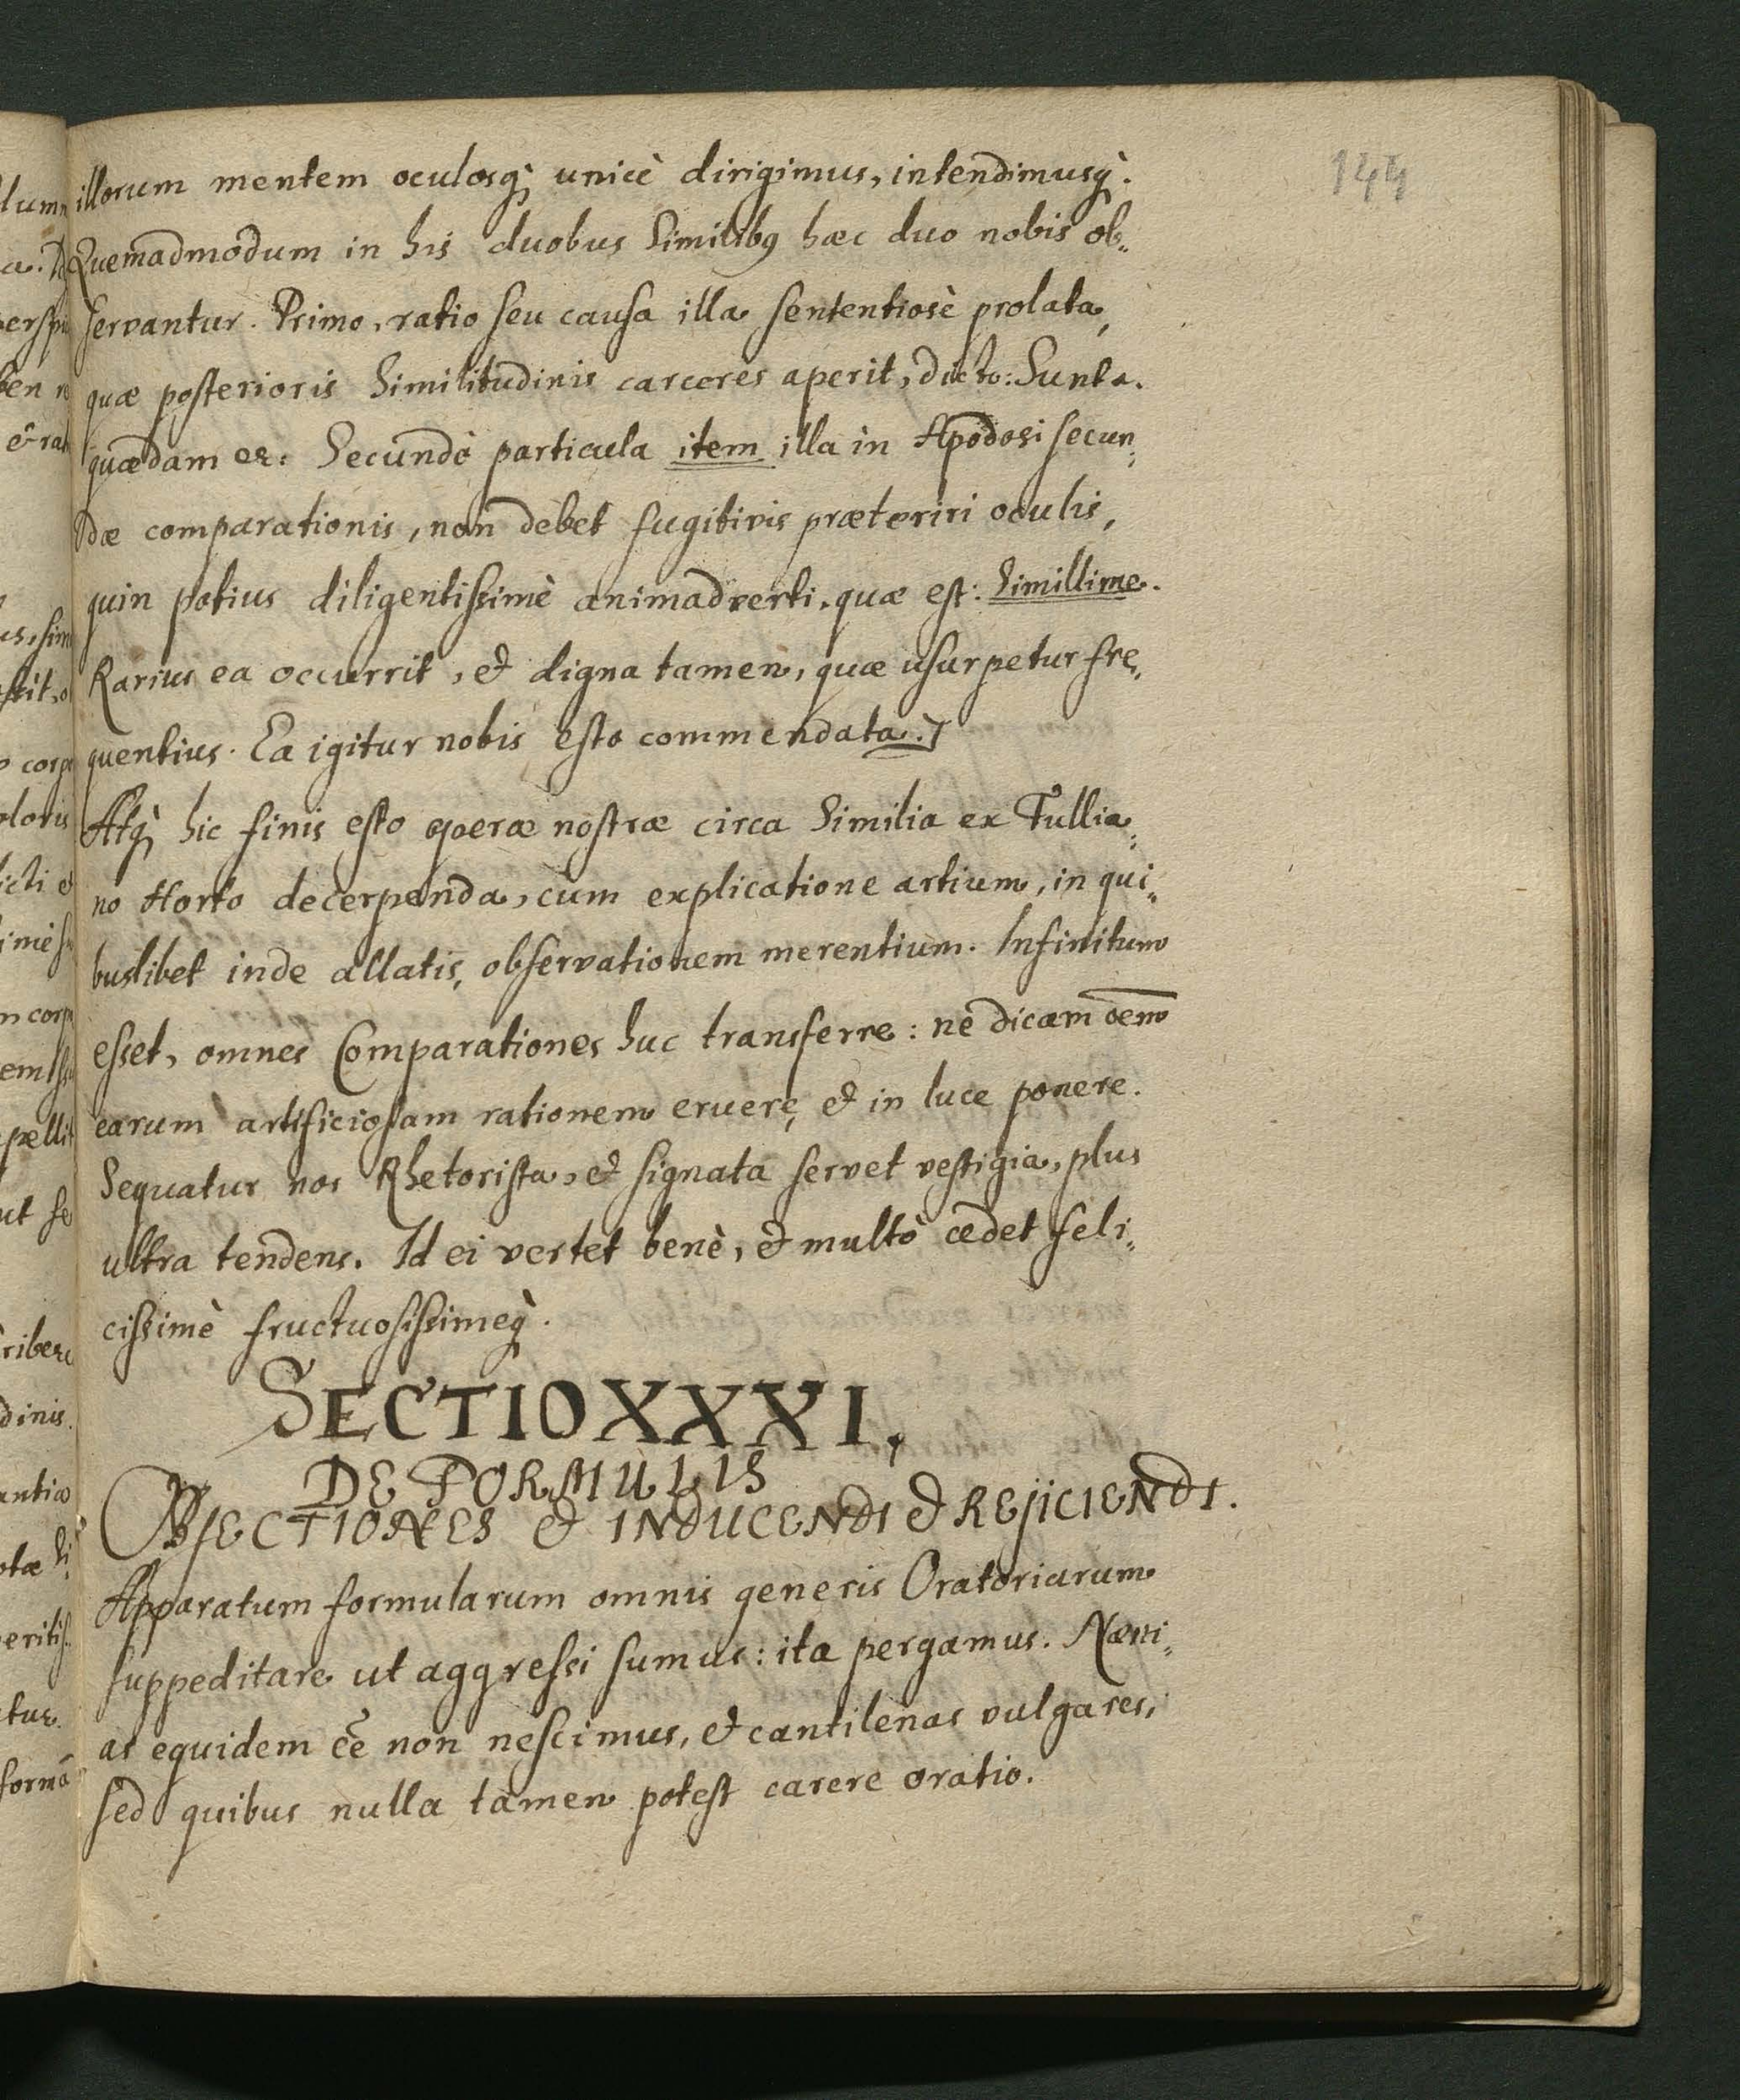 144
illorum mentem oculosq; unicè dirigimus, intendimusq̀.
Quemadmodum in his duobus Similibꝰ hæc duo nobis ob„
servantur. Primo, ratio seu causa illa sententiosè prolata,
quæ posterioris Similitudinis carceres aperit, dicto: Sunt a.
quædam ec. Secundò particula item illa in Apodosi secun„
dæ comparationis, non debet fugitivis præteriri oculis,
quin potius diligentissimè animadverti, quæ est: Simillime.
Rarius ea occurrit, et digna tamen, quæ usurpetur fre„
quentius. Ea igitur nobis esto commendata.
Atq; hic finis esto operæ nostræ circa Similia ex Tullia„
no Horto decerpenda, cum explicatione artium, in qui„
buslibet inde allatis, observationem merentium. Infinitum
esset, omnes Comparationes huc transferre: ne dicam oem̄
earum artificiosam rationem eruere, et in luce ponere.
Sequatur nos Rhetorista, et signata servet vestigia, plus
ultra tendens. Id ei vertet benè, et multò cedet feli„
cissimè fructuosissimeq̀.
SECTIO XXXI.
DE FORMULIS
OBJECTIONES et INDUCENDI et REJICIENDI.
Apparatum formularum omnis generis Oratoriarum
suppeditare ut aggressi sumus: ita pergamus. Næni„
as equidem ee̅ non nescimus, et cantilenas vulgares,
sed quibus nulla tamen potest carere oratio.